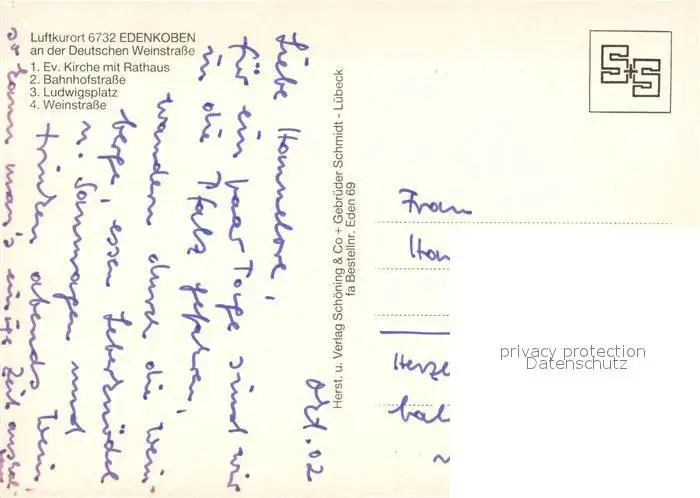 Luftkurort 6732 EDENKOBEN
an der Deutschen Weinstraße
1. Ev. Kirche mit Rathaus
2. Bahnhofstraße
3. Ludwigsplatz
4. Weinstraße
S+S
Herst. u. Verlag Schöning & Co + Gebrüder Schmidt - Lübeck
fa Bestellnr. Eden 69
Okt. 02
Liebe Hannelore,
für ein paar Tage sind wir
in die Pfalz gefahren,
wandern durch die Wein-
berge, essen Leberknödel
u. Saumagen und
trinken abends Wein
so kann man's einige Zeit aushal
Frau
Han
Herzl
bal
privacy protection
Datenschutz